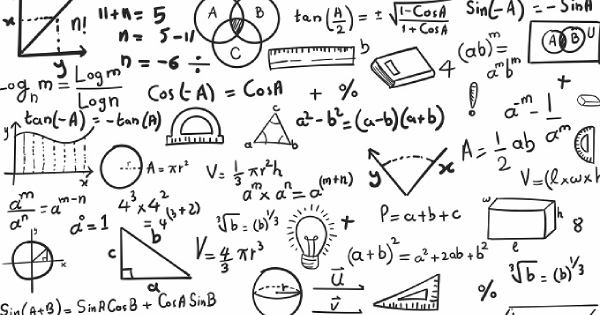 x
y
n!
11+n = 5
n = 5-11
n = -6 ÷
A B
C
tan(A/2) = ± √(1-CosA / 1+CosA)
Sin(-A) = -SinA
b
4
(ab)^m
a^m b^m
A B U
m = Logm / Logn
Cos(-A) = CosA + %
tan(-A) = -tan(A)
c
a b
a²-b²=(a-b)(a+b)
!
a^-m - 1/a^m
+
y
x
r
A = πr²
V = 1/3 πr²h
a^m x a^n = a^(m+n)
y x
A = 1/2 ab
V=(l x w x h
a^m/a^n = a^m-n
a° = 1
4³ x 4²
= 4^(3+2)
³√b = (b)^1/3
+
P = a+b+c
w
h
l
8
x
c b
a
V = 4/3 πr³
(a+b)² = a²+2ab+b²
³√b = (b)^1/3
r
u
v
%
Sin(A+B) = SinA CosB + CosA SinB